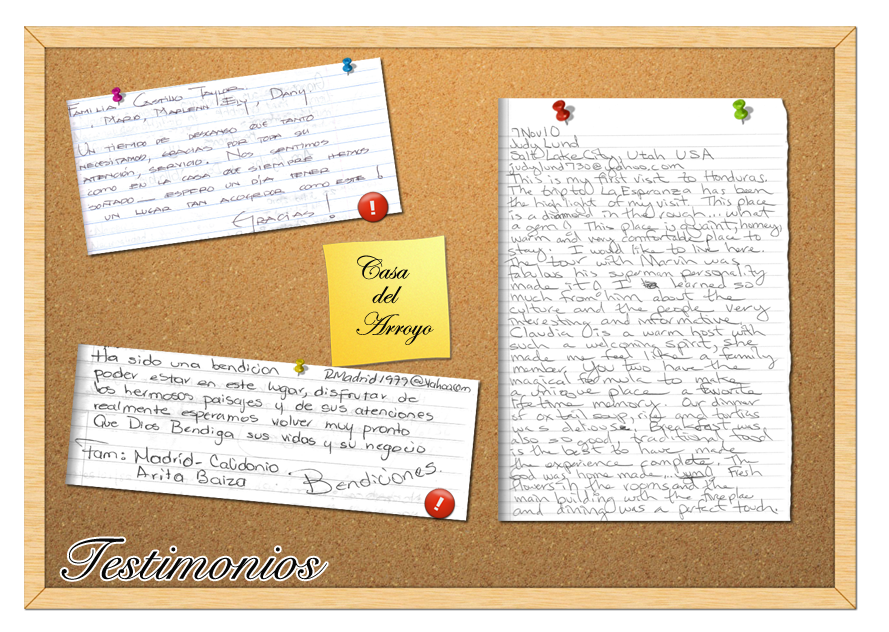 Familia Castillo Taylor
. Mario, Marlenn Ely, Dany
Un tiempo de descanso que tanto
necesitamos, gracias por toda su
atención, servicio. Nos sentimos
como en la casa que siempre hemos
soñado — espero un día tener
un lugar tan acogedor como este!
Gracias!
Casa
del
Arroyo
Ha sido una bendicion
RMadrid1979@yahoo.com
poder estar en este lugar, disfrutar de
los hermosos paisajes y de sus atenciones
realmente esperamos volver muy pronto
Que Dios Bendiga sus vidas y su negocio
Fam: Madrid-Calidonio.
Arita Baiza
Bendiciones.
7Nov10
Judy Lund
Salt Lake City, Utah USA
judylund730@yahoo.com
This is my first visit to Honduras.
The trip to La Esperanza has been
the highlight of my visit. This place
is a diamond in the rough... what
a gem! This place is quaint, homey,
warm and very comfortable place to
stay. I would like to live here.
The tour with Marvin was
fabulous his superman personality
made it! I learned so
much from him about the
culture and the people very
interesting and informative.
Claudia is a warm host with
such a welcoming spirit, she
made me feel like a family
member. You two have the
magical formula to make
a unique place a favorite
lifetime memory. Our dinner
of oxtail soup, and tortias
was delicose. Breakfast was
also so good, traditional food
is the best to have, made
the experience complete. The
food was home made... Fresh
flowers in the rooms and the
main building with the fireplace
and dinning was a perfect touch.
Testimonios